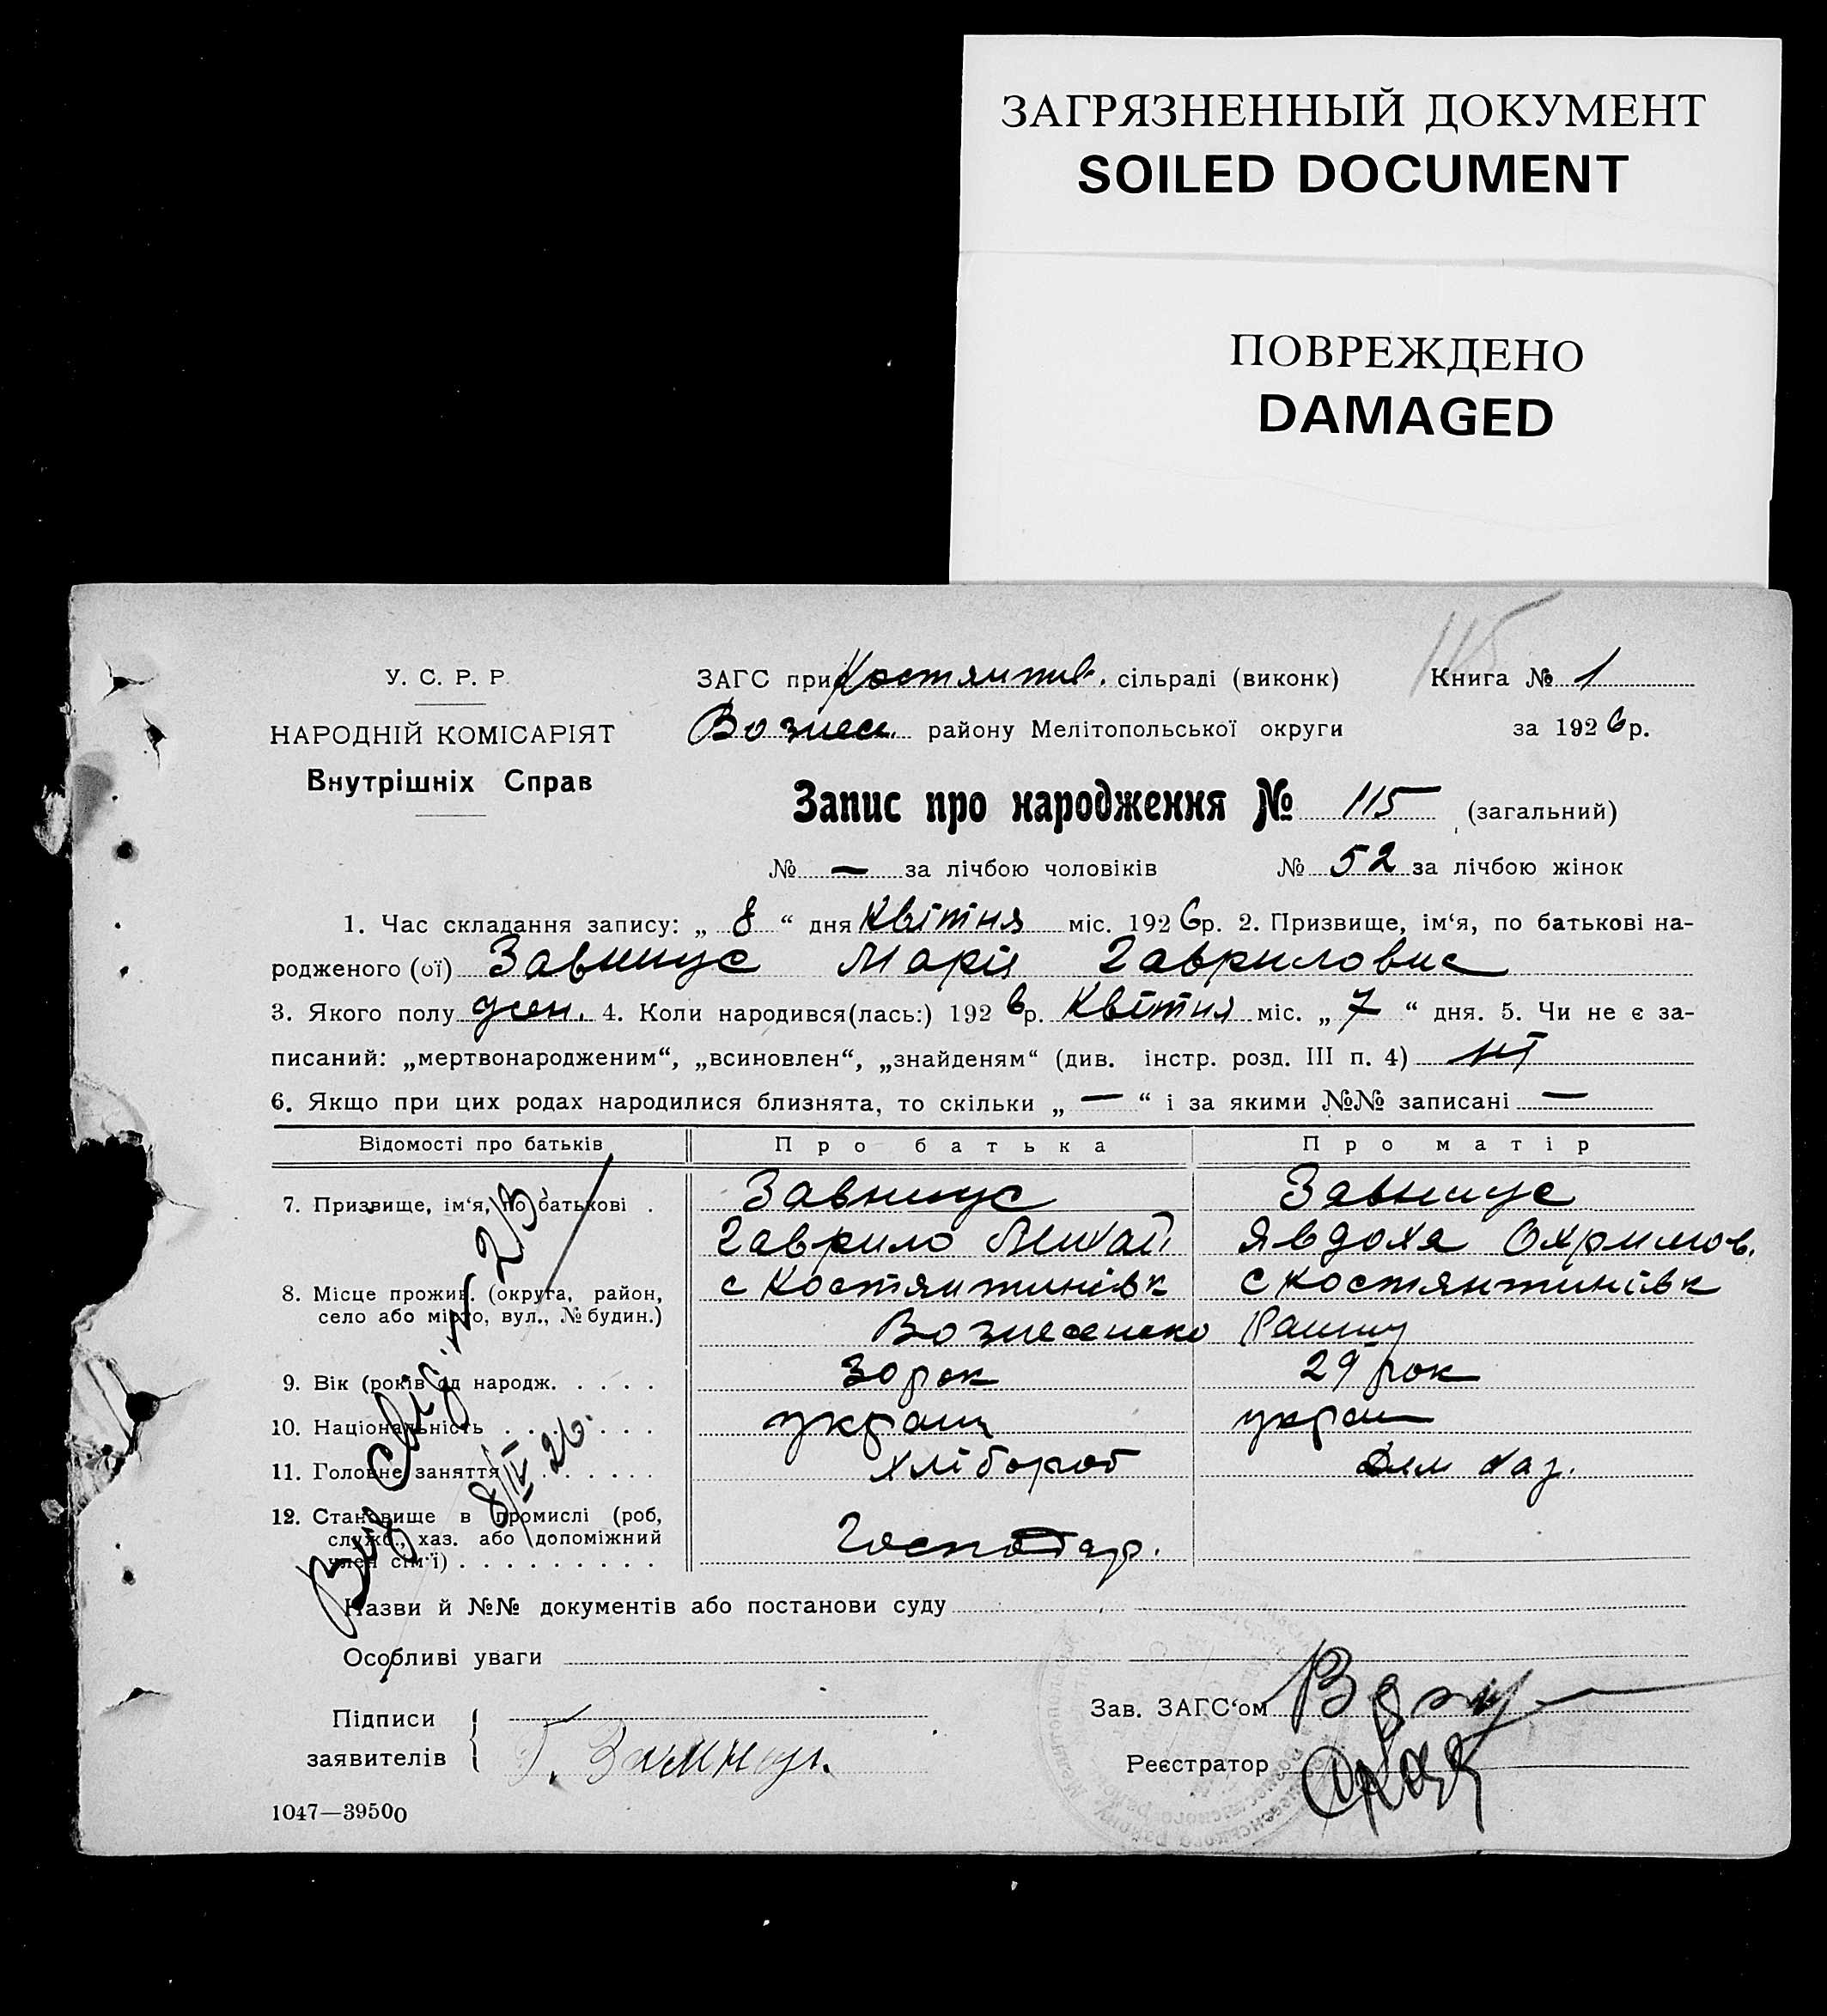 ЗАГРЯЗНЕННЫЙ ДОКУМЕНТ
SOILED DOCUMENT
ПОВРЕЖДЕНО
DAMAGED
115
У. С. Р. Р.
НАРОДНІЙ КОМІСАРІЯТ
Внутрішніх Справ
ЗАГС при Костянтив. сільраді (виконк) Книга № 1
Вознесе. району Мелітопольської округи за 1926р.
Запис про народження № 115 (загальний)
№ — за лічбою чоловіків № 52 за лічбою жінок
1. Час складання запису: „ 8 “ дня Квітня міс. 1926р. 2. Призвище, ім‘я, по батькові на-
родженого (ої) Марія Гавриловне
3. Якого полу жен. 4. Коли народився(лась:) 1926р. Квітня міс. „ 7 “ дня. 5. Чи не є за-
писаний: „мертвонародженим“, „всиновлен“, „знайденям“ (див. інстр. розд. III п. 4) ні
6. Якщо при цих родах народилися близнята, то скільки „ — “ і за якими №№ записані —
Відомості про батьків Про батька Про матір
7. Призвище, ім‘я, по батькові .
Гаврило Михай Явдоха Охримов.
8. Місце прожив. (округа, район, с Костянтинівк с Костянтинівк
село або місто, вул., № будин.) Вознесенско Району
9. Вік (років од народж. . . . . 30 рок 29 рок
10. Національність . . . . . . україн україн
11. Головне заняття . . . . . . хлібороб Дом хаз.
12. Становище в промислі (роб,
служб., хаз. або допоміжний Господар.
член сім‘ї) . . . . . . . . .
8/IV 26.
Назви й №№ документів або постанови суду
Особливі уваги
Підписи
заявителів
Г.
Зав. ЗАГС‘ом
Реєстратор
1047—39500